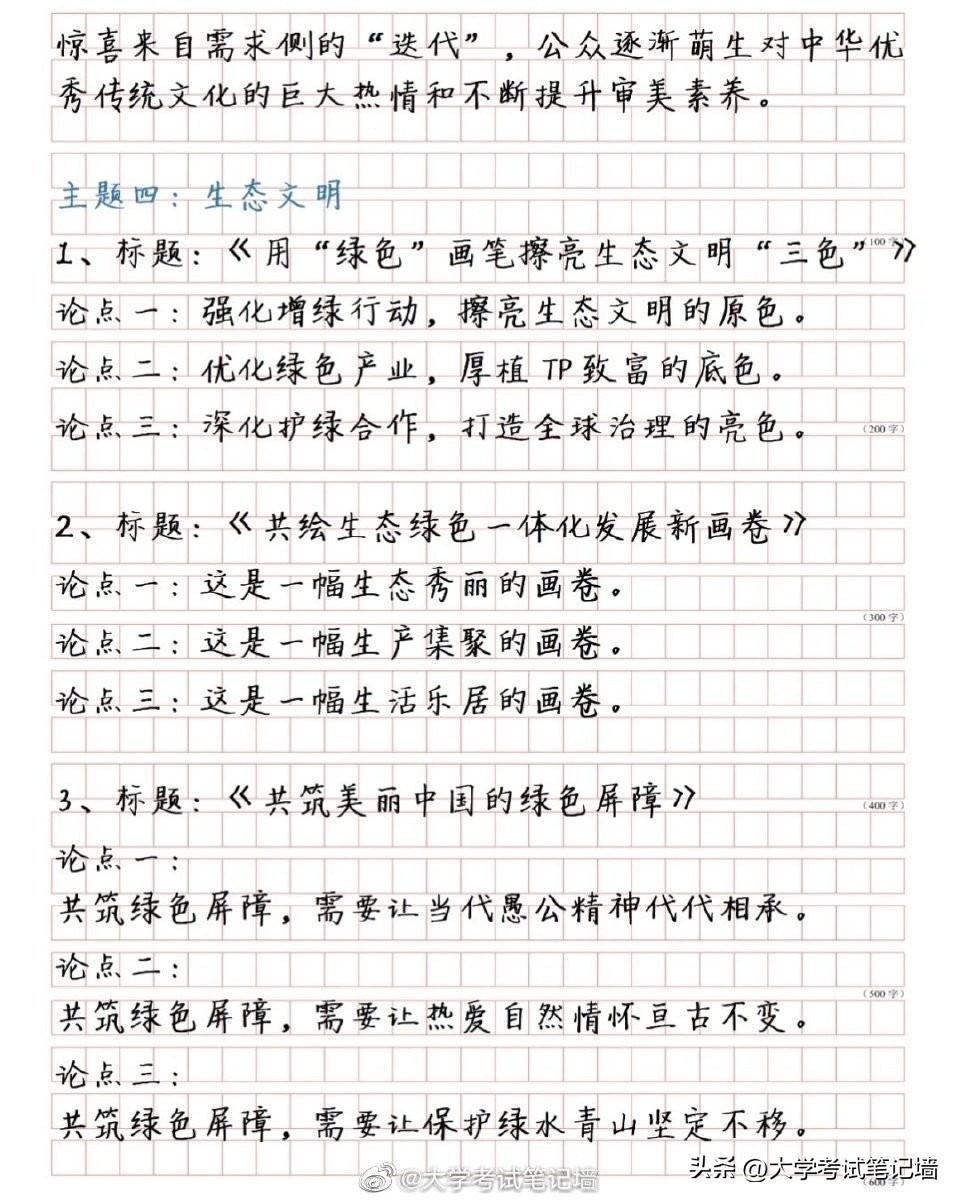 惊喜来自需求侧的“迭代”，公众逐渐萌生对中华优
秀传统文化的巨大热情和不断提升审美素养。
主题四：生态文明
1、标题：《用“绿色”画笔擦亮生态文明“三色”》
（100字）
论点一：强化增绿行动，擦亮生态文明的原色。
论点二：优化绿色产业，厚植TP致富的底色。
论点三：深化护绿合作，打造全球治理的亮色。
（200字）
2、标题：《共绘生态绿色一体化发展新画卷》
论点一：这是一幅生态秀丽的画卷。
（300字）
论点二：这是一幅生产集聚的画卷。
论点三：这是一幅生活乐居的画卷。
3、标题：《共筑美丽中国的绿色屏障》
（400字）
论点一：
共筑绿色屏障，需要让当代愚公精神代代相承。
论点二：
（500字）
共筑绿色屏障，需要让热爱自然情怀亘古不变。
论点三：
共筑绿色屏障，需要让保护绿水青山坚定不移。
@大学考试笔记墙
头条 @大学考试笔记墙
（600字）